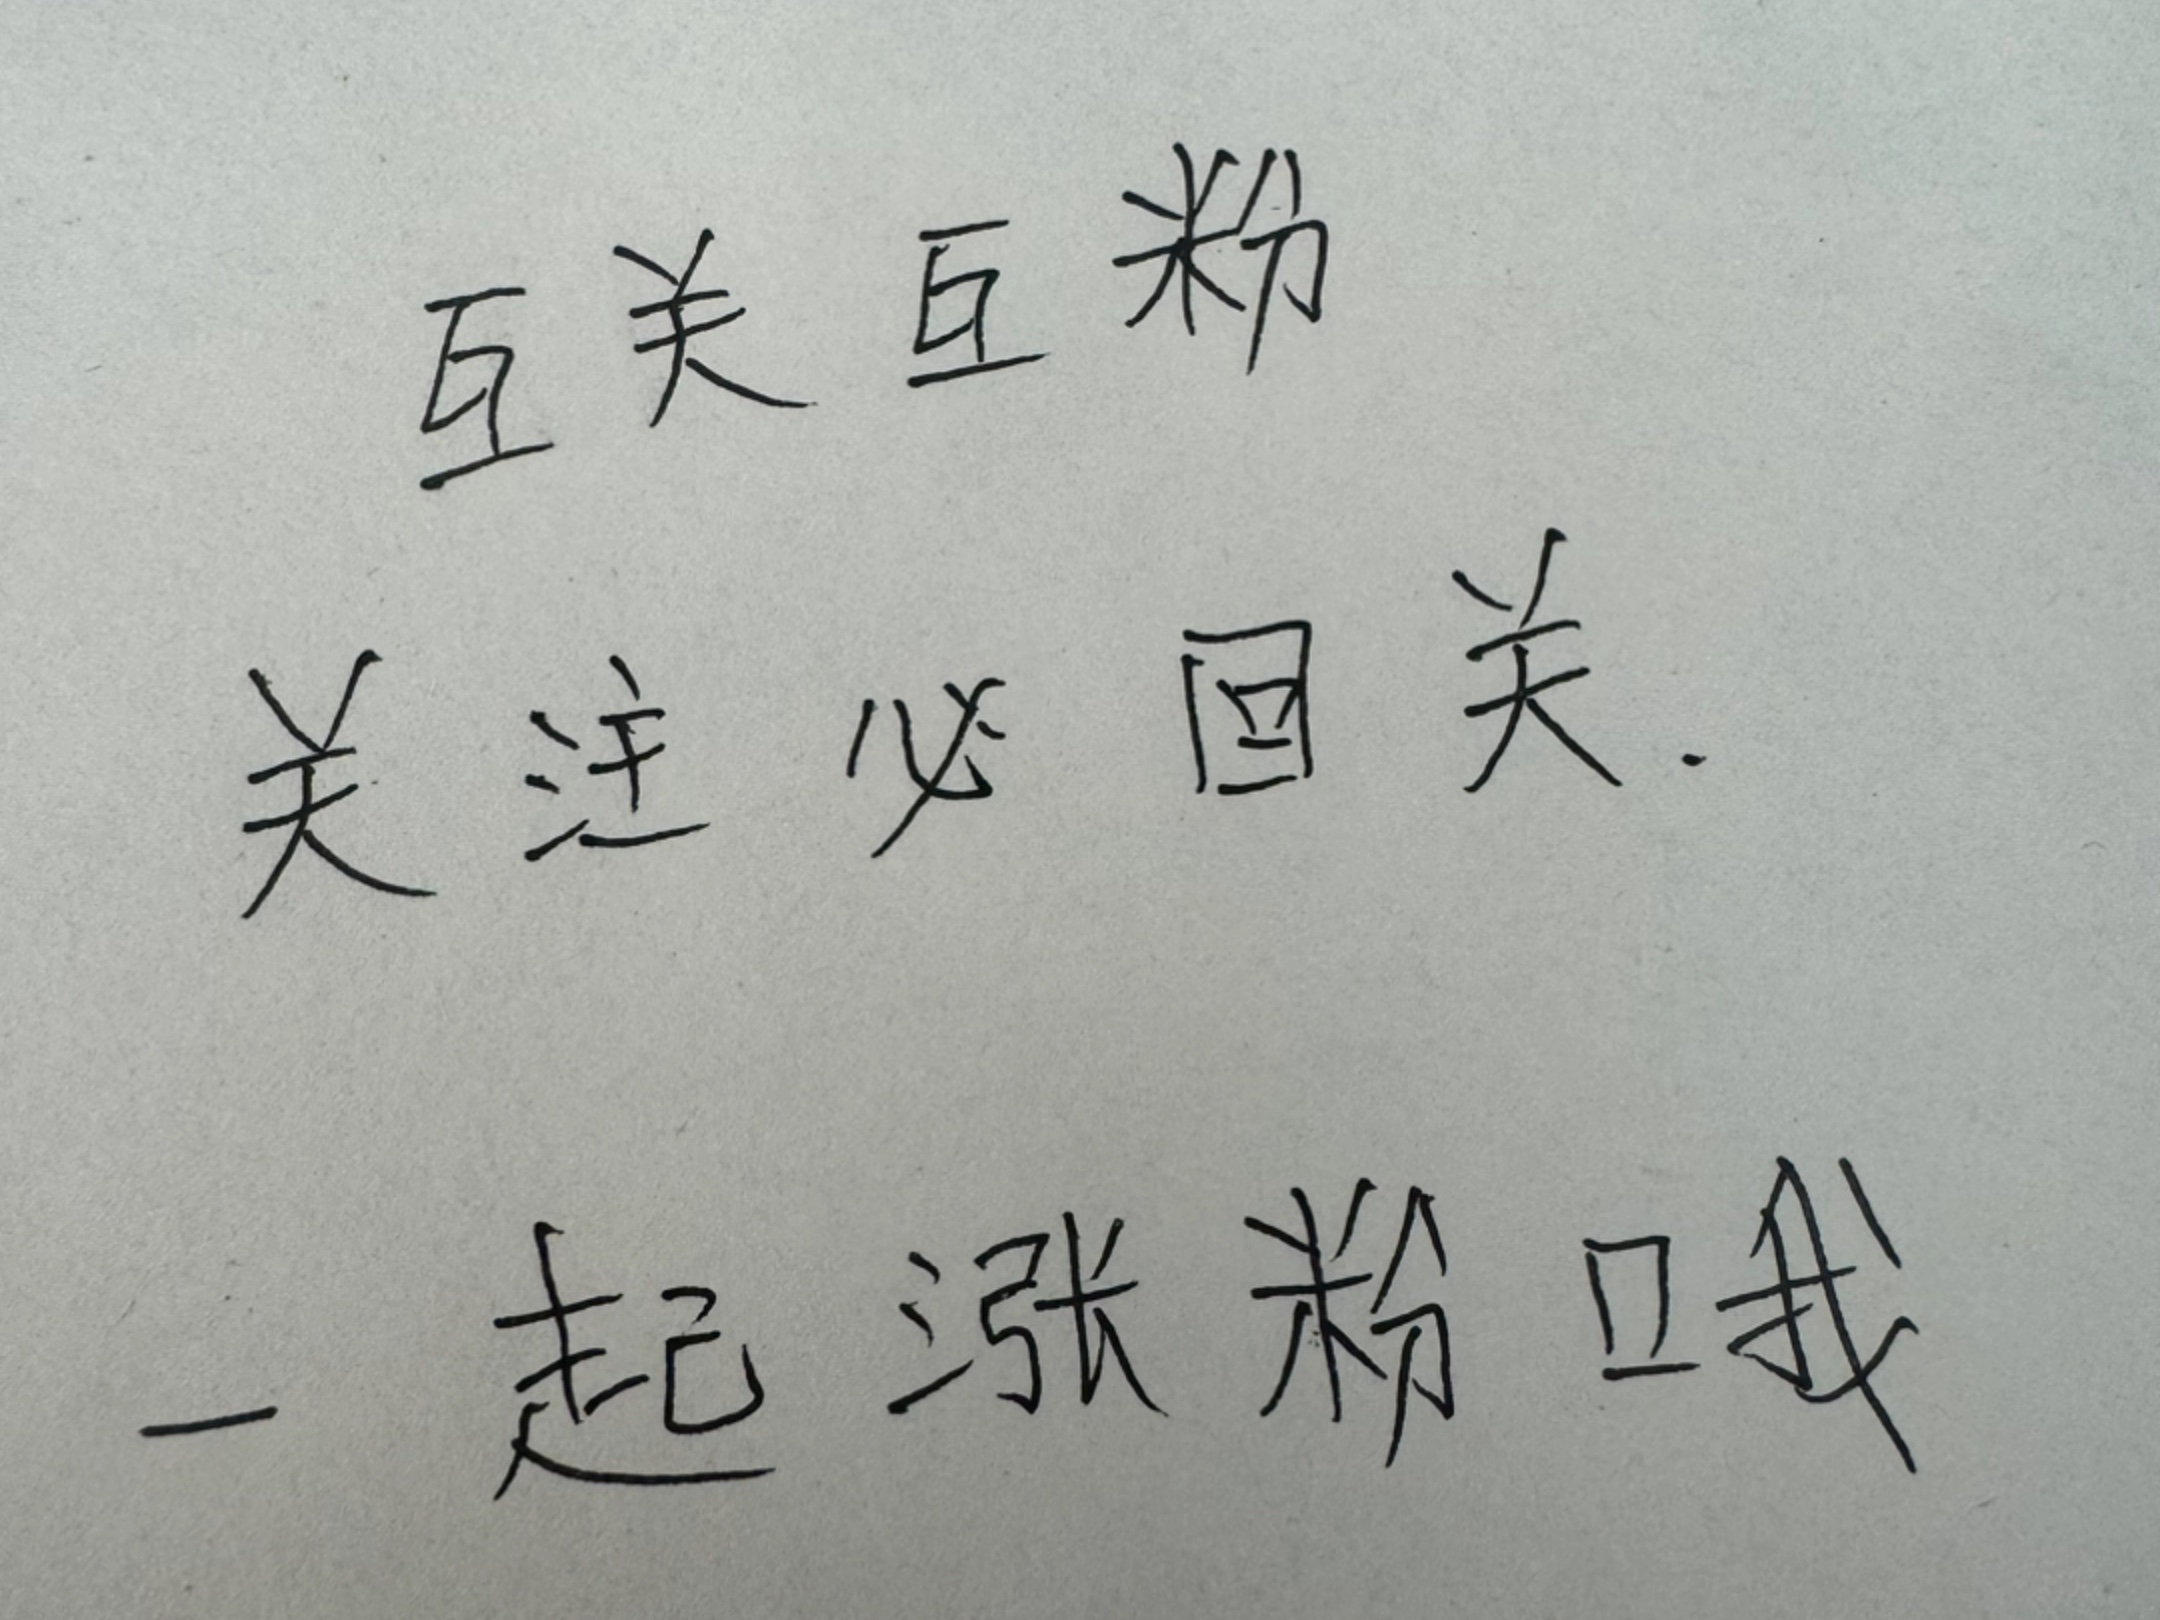 互关互粉
关注必回关.
一起涨粉哦